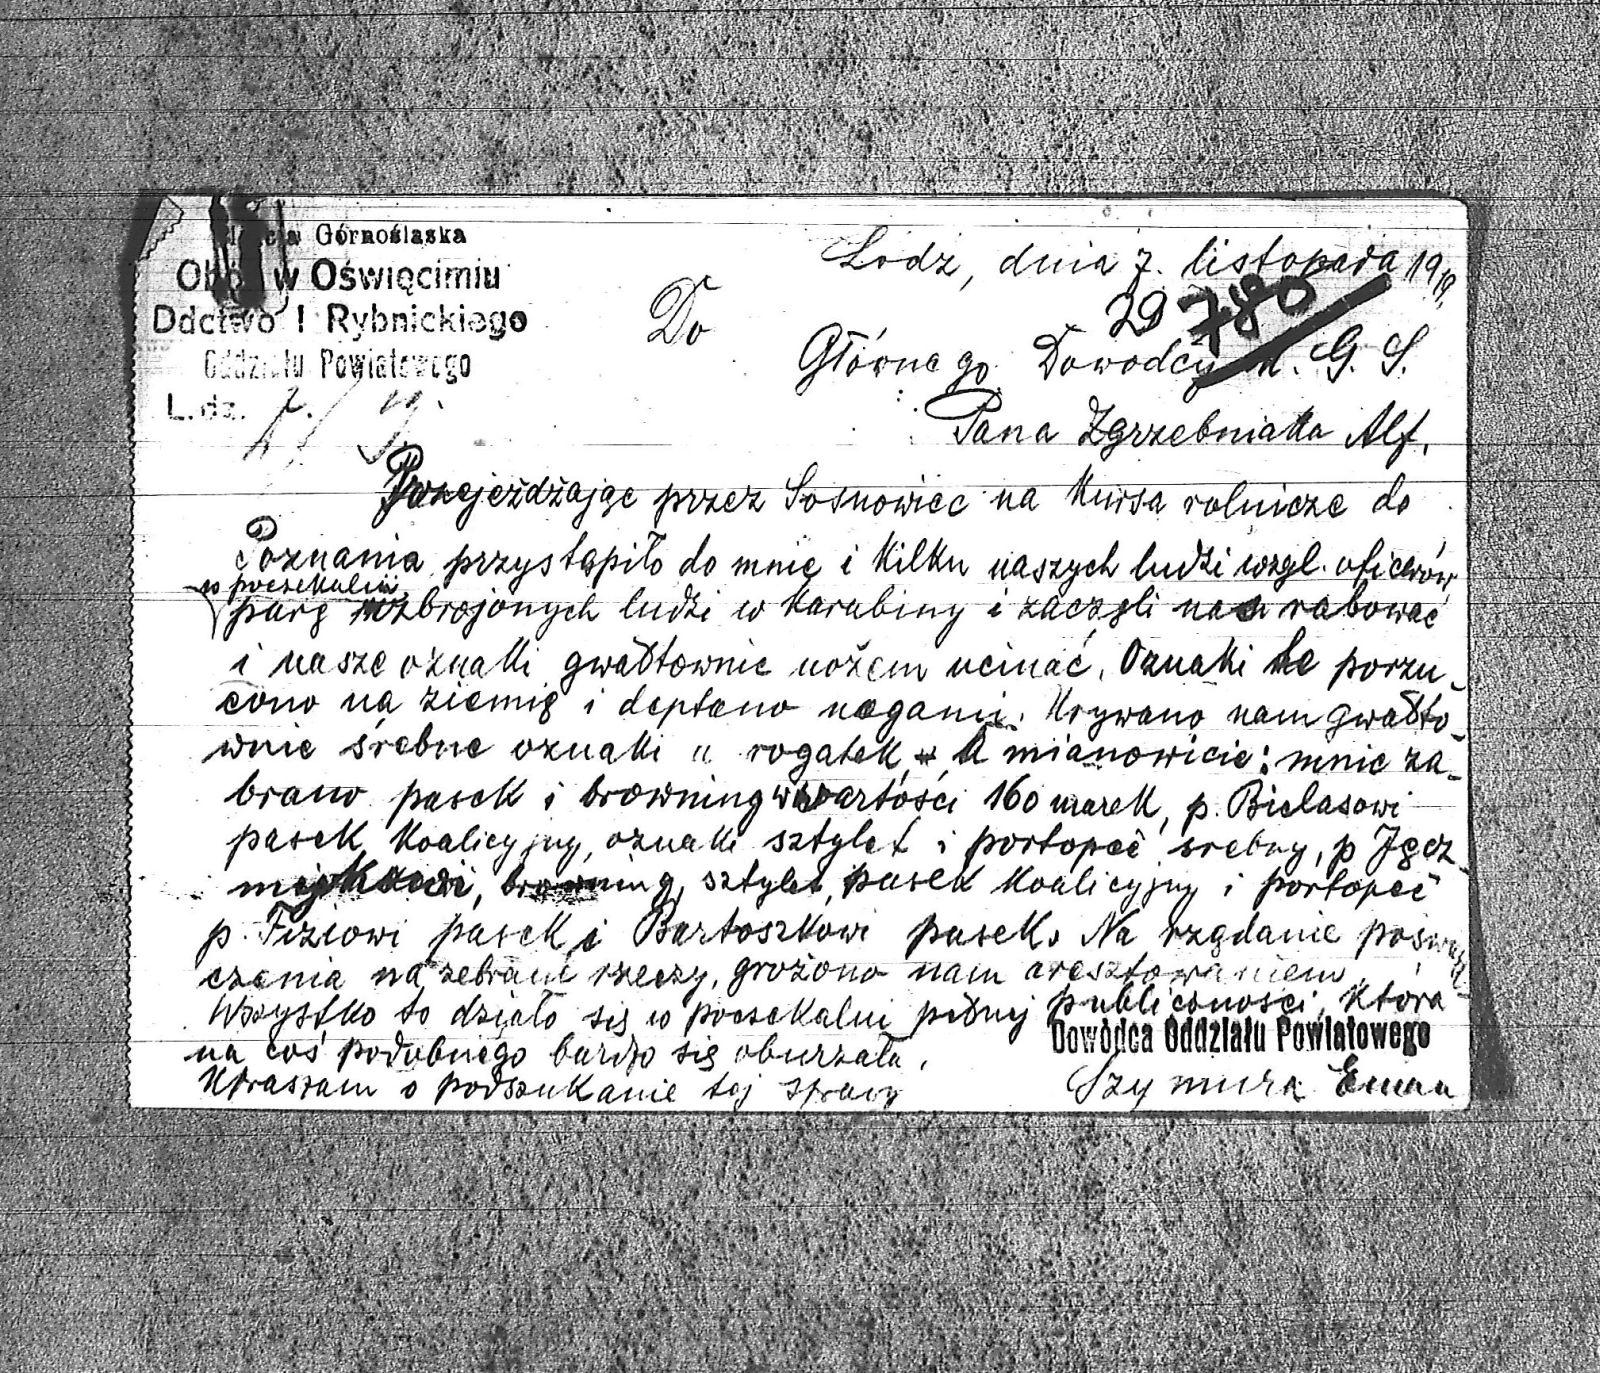 Górnośląska
Obóz w Oświęcimiu
Ddctwo I Rybnickiego
Oddziału Powiatowego
L. dz. 7. / 19.
Łodz, dnia 7. listopada 1919.
29 786
Do
Głównego Dowodcy G. S.
Pana Zgrzebniaka Alf.
Przejeżdżając przez Sosnowiec na kursa rolnicze do
Poznania przystąpiło do mnie i kilku naszych ludzi wzgl. oficerów
w poczekalni
parę uzbrojonych ludzi w karabiny i zaczęli nas rabować
i nasze oznaki gwałtownie nożem ucinać. Oznaki te porzu-
cono na ziemię i deptano nogami. Urywano nam gwałto-
wnie śrebne oznaki u rogatek a mianowicie: mnie za-
brano pasek i browning wartości 160 marek, p. Bielasowi
pasek koalicyjny, oznaki sztylet i portopeć srebny, p Jęcz-
browning, sztylet, pasek koalicyjny i portopeć
p. Fiziowi pasek i Bartoszkowi pasek. Na rządanie poświad-
czenia na zebrane rzeczy, grożono nam aresztowaniem.
Wszystko to działo się w poczekalni pełnej publiczności, która
na coś podobnego bardzo się oburzała.
Upraszam o podszukanie tej sprawy
Dowódca Oddziału Powiatowego
Szymura